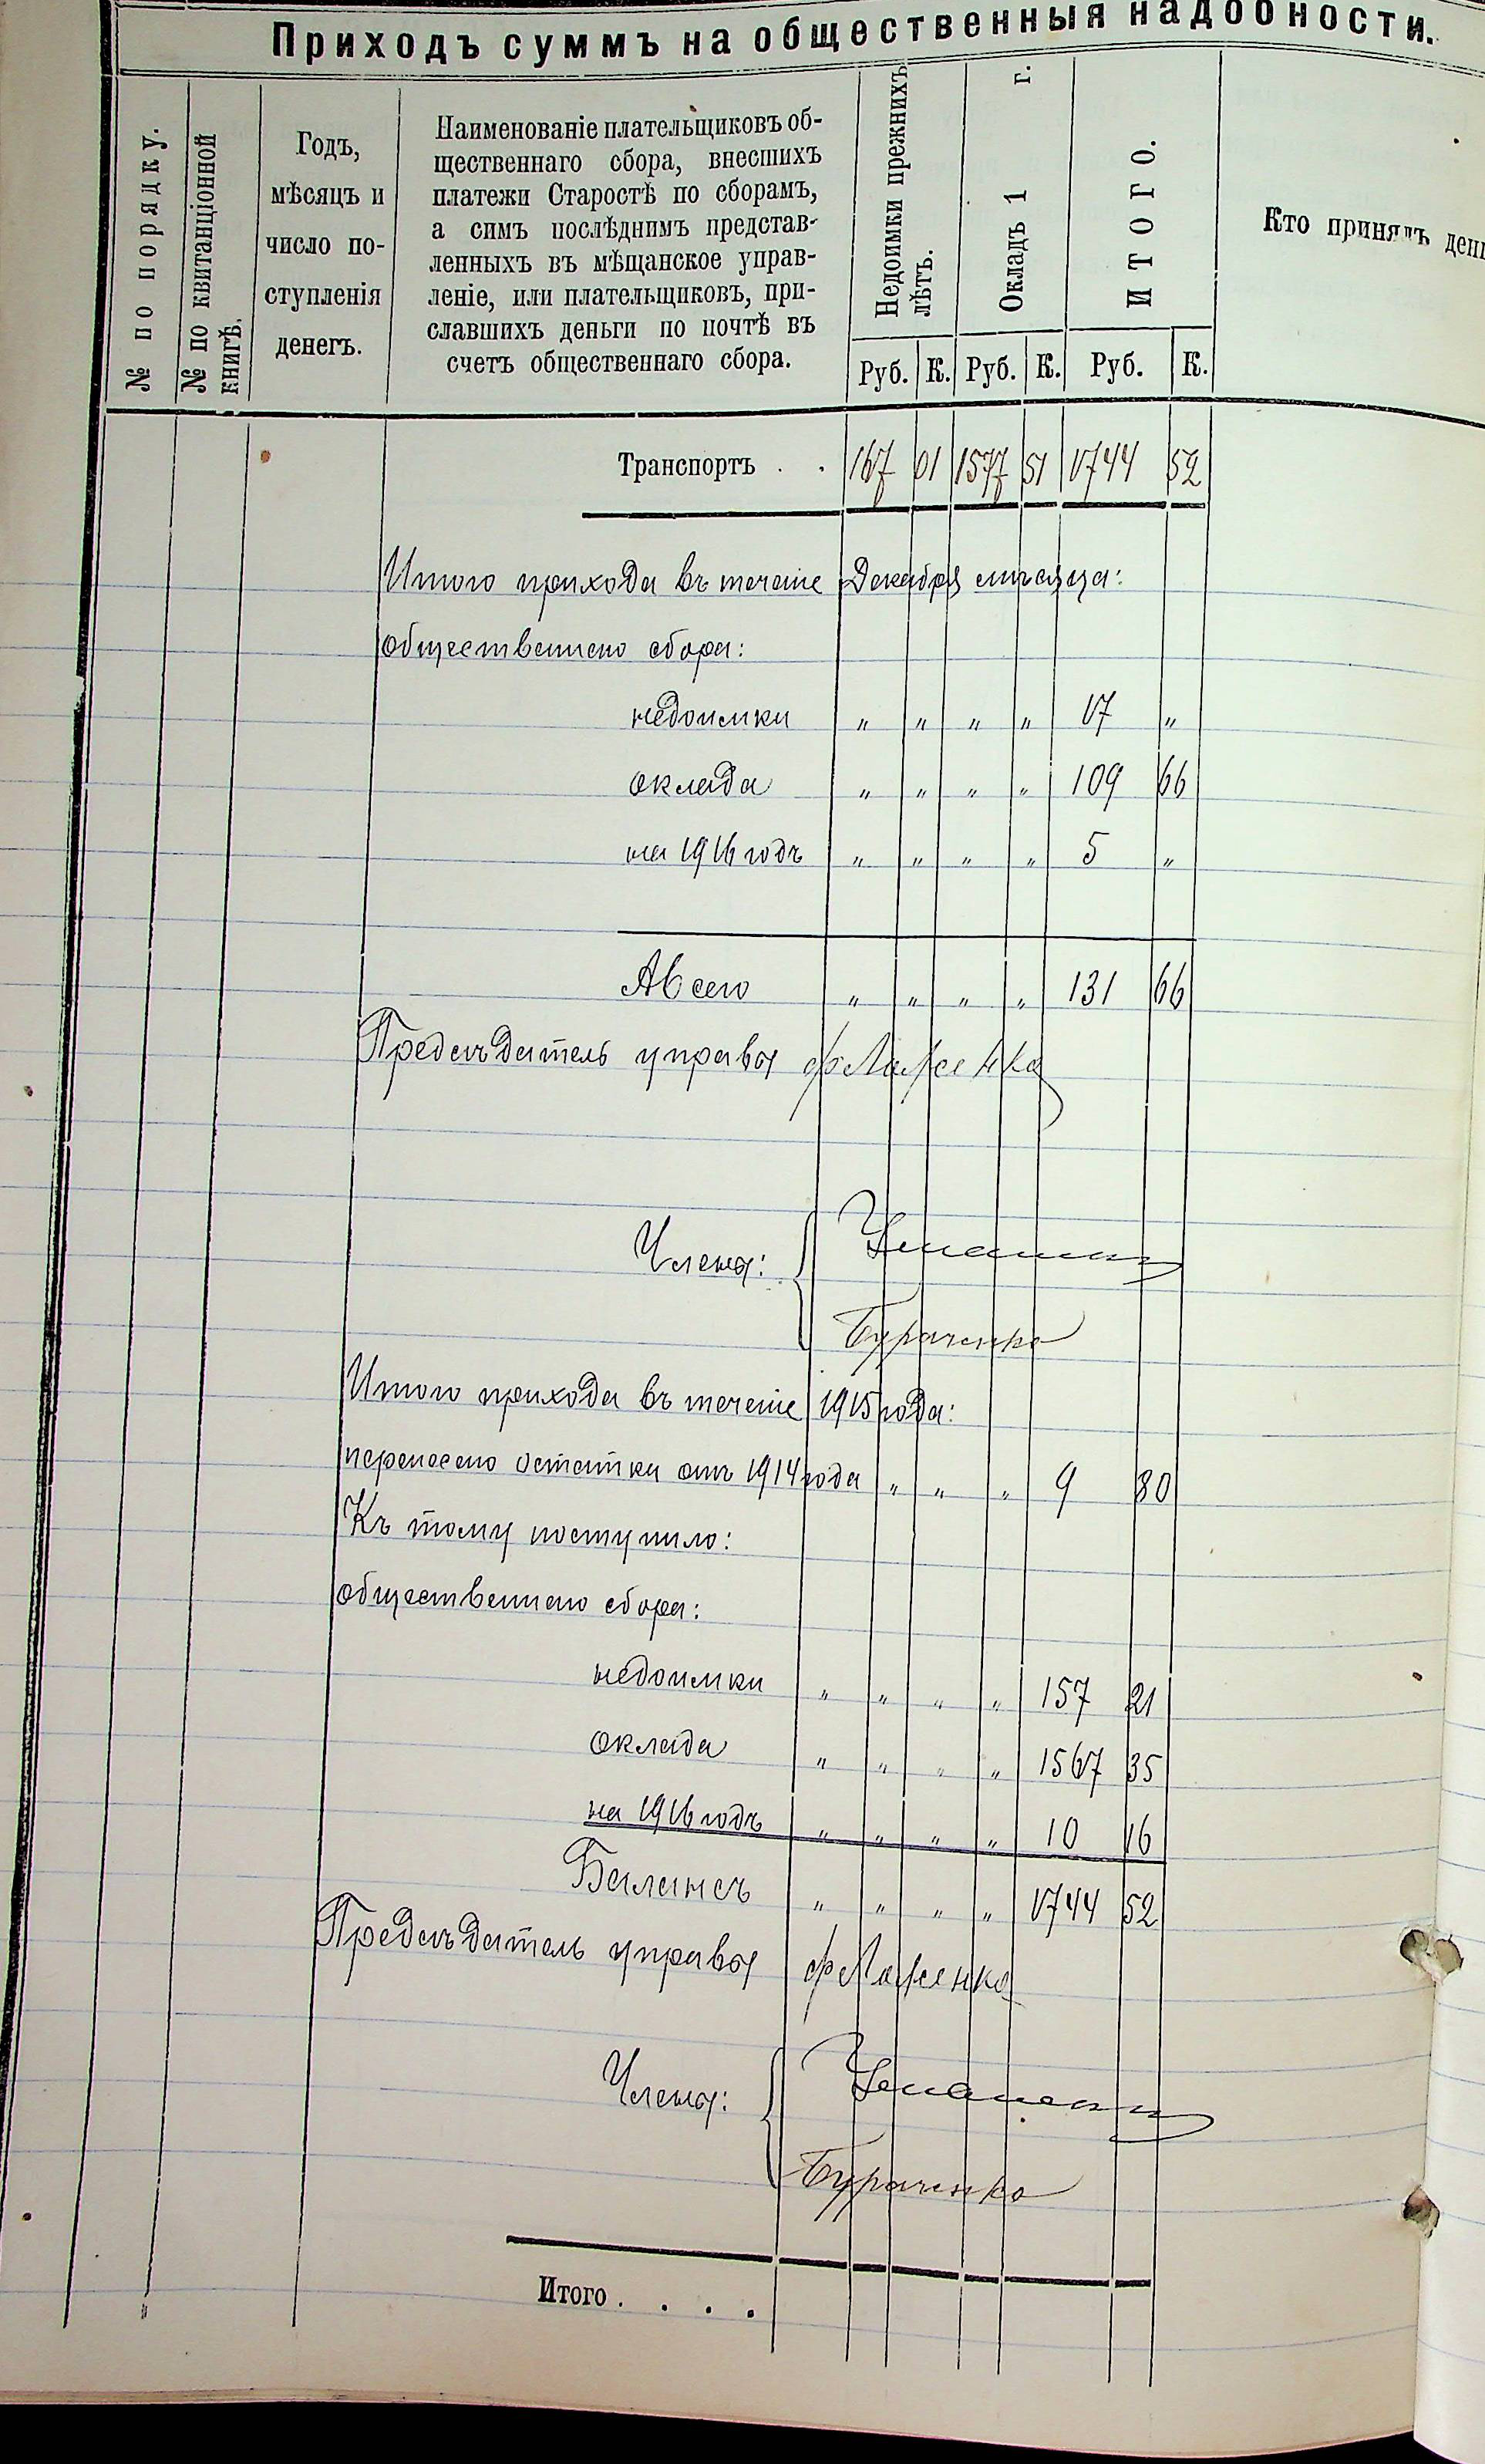 Приходъ суммъ на общественныя надобности.
№ по порядку.
№ по квитанціонной
книгѣ.
Годъ,
мѣсяцъ и
число по-
ступленія
денегъ.
Наименованіе плательщиковъ об-
щественнаго сбора, внесшихъ
платежи Старостѣ по сборамъ,
а симъ послѣднимъ представ-
ленныхъ въ мѣщанское управ-
леніе, или плательщиковъ, при-
славшихъ деньги по почтѣ въ
счетъ общественнаго сбора.
Недоимки прежнихъ
лѣтъ.
Окладъ 1 г.
ИТОГО.
Кто принялъ
Руб. К. Руб. К. Руб. К.
Транспортъ . . 167 01 1577 51 1744 52
Итого прихода въ теченіе Декабря мѣсяца:
общественнаго сбора:
недоимки " " " " 17 "
оклада " " " " 109 66
на 1916 годъ " " " " 5 "
А всего " " " " 131 66
Предсѣдатель управы
Члены:
Бураченко
Итого прихода въ теченіе 1915 года:
перенесено остатки отъ 1914 года " " " 9 80
Къ тому поступило:
общественнаго сбора:
недоимки " " " " 157 21
оклада " " " " 1567 35
на 1916 годъ " " " " 10 16
Балансъ " " " " 1744 52
Предсѣдатель управы
Члены:
Бураченко
Итого . . . .